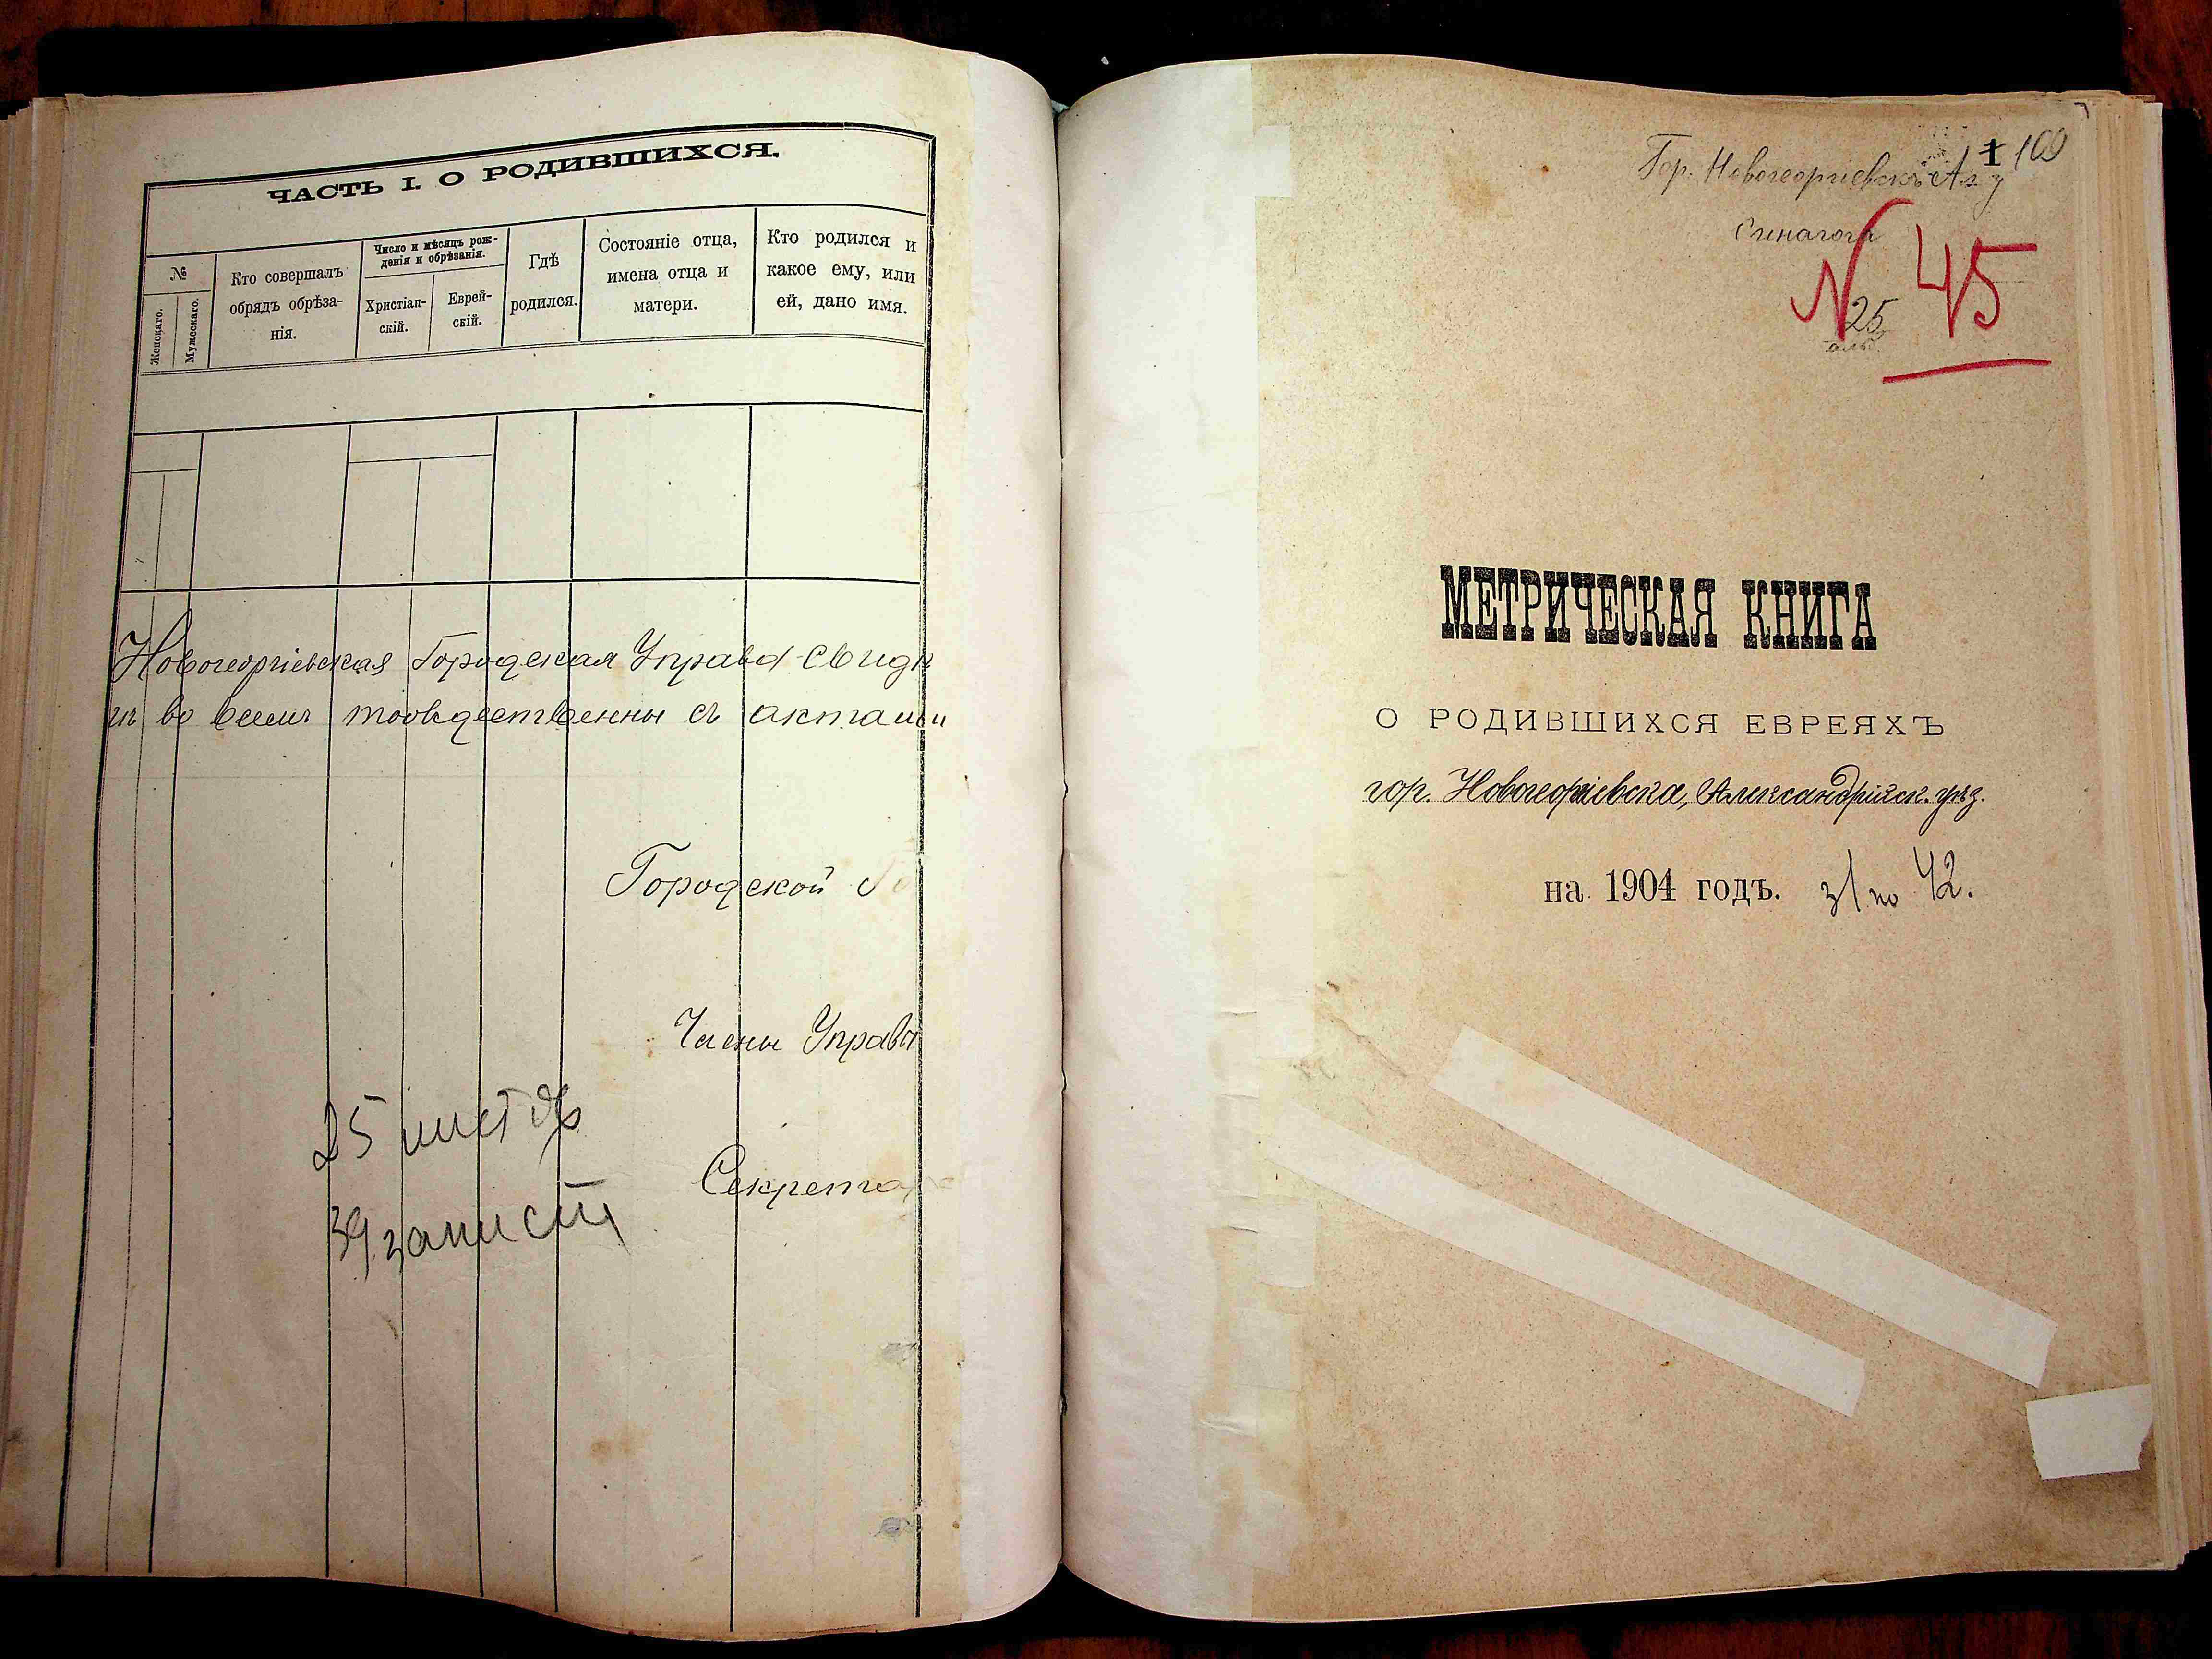 ЧАСТЬ I. О РОДИВШИХСЯ.
№
Женскаго.
Мужескаго.
Кто совершалъ
обрядъ обрѣза-
нія.
Число и мѣсяцъ рож-
денія и обрѣзанія.
Христіан-
скій.
Еврей-
скій.
Гдѣ
родился.
Состояніе отца,
имена отца и
матери.
Кто родился и
какое ему, или
ей, дано имя.
Новогеоргіевская Городская Управа свидѣ
въ во всемъ тождественны съ актами
Городской Го
Члены Управы
Секретар
25 лист
39 записей
1 100
Гор. Новогеоргіевскъ Ал. у
Синагога
N 45
25
МЕТРИЧЕСКАЯ КНИГА
О РОДИВШИХСЯ ЕВРЕЯХЪ
гор. Новогеоргіевска, Александрійск. уѣз.
на 1904 годъ. 31 по 42.